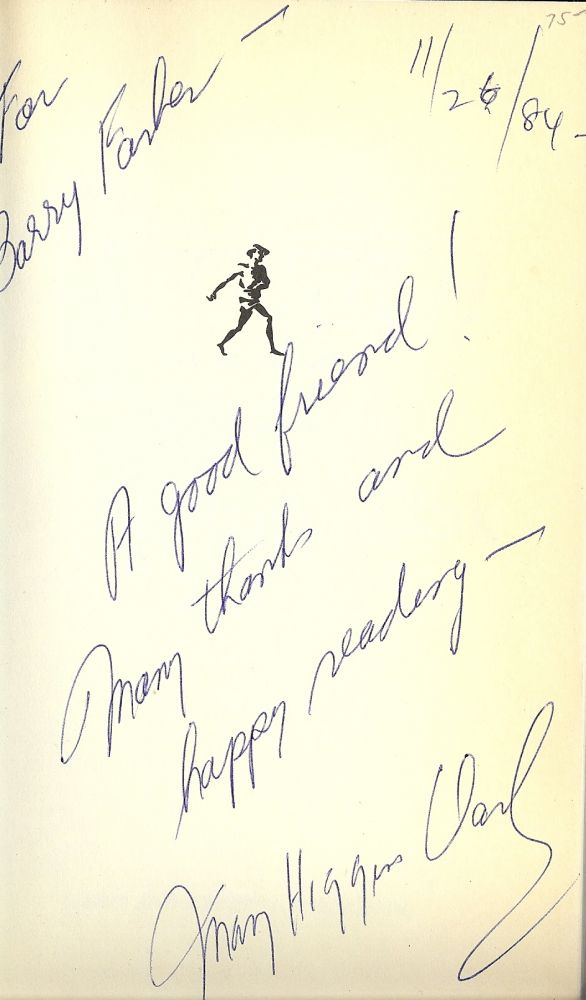 75-
11/26/84-
For
Barry Farber —
A good friend!
Many thanks and
happy reading —
Mary Higgins Clark